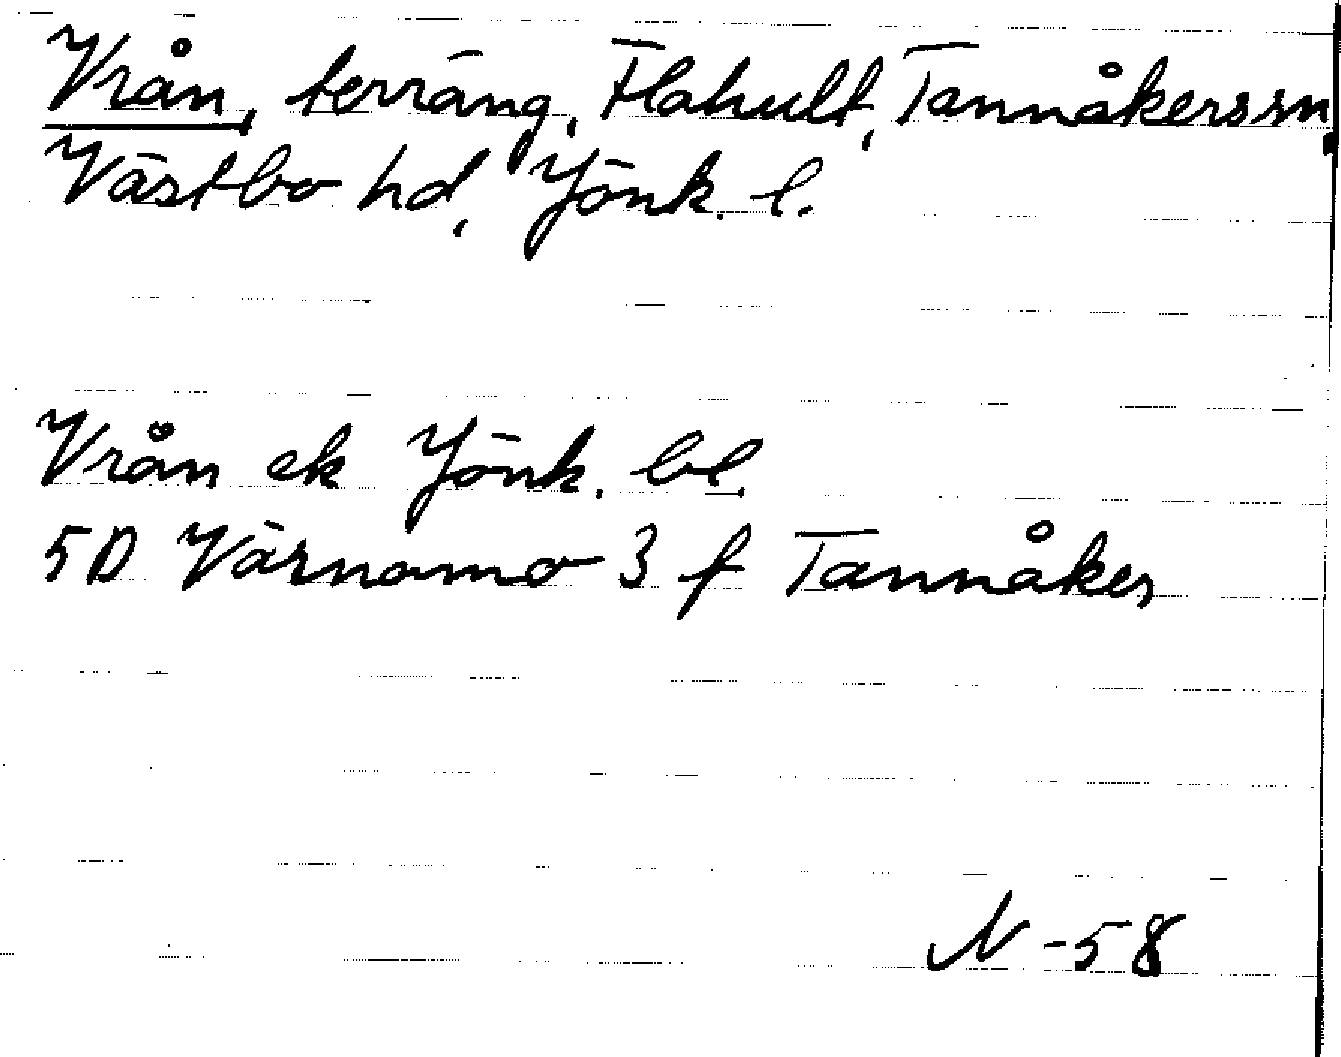 Vrån, terräng, Flahult, Tannåkers sn,
Västbo hd, Jönk. l.
Vrån ek Jönk. bl.
5D Värnamo 3 f Tannåker
N -58